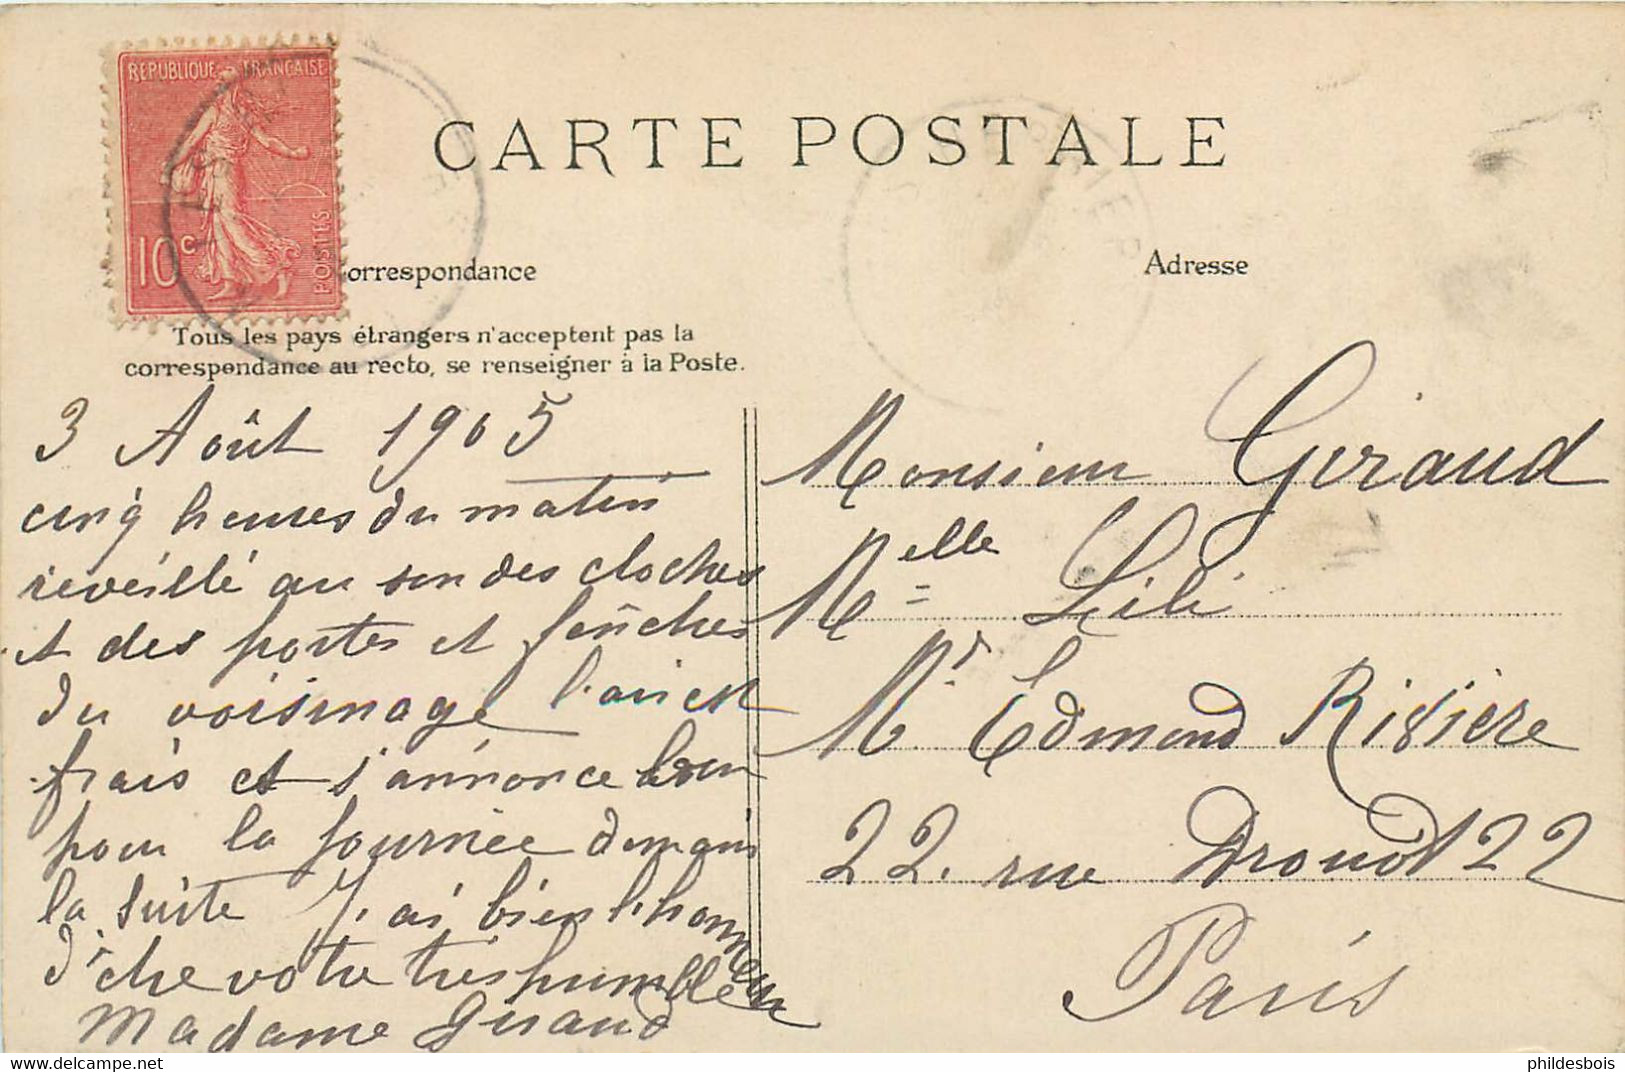 REPUBLIQUE FRANÇAISE
10c
POSTES
CARTE POSTALE
Correspondance
Adresse
Tous les pays étrangers n'acceptent pas la
correspondance au recto, se renseigner à la Poste.
3 Août 1905
cinq heures du matin
reveillé au son des cloches
et des portes et fenêches
du voisinage l'air est
frais et s'annonce bon
pour la journée demain
la suite J'ai bien l'honneur
d'iche votre très humble
Madame Giraud
Monsieur Giraud
Melle Lili
Mr. Edmond Rivière
22. rue Drouot 22
Paris
www.delcampe.net
phildesbois